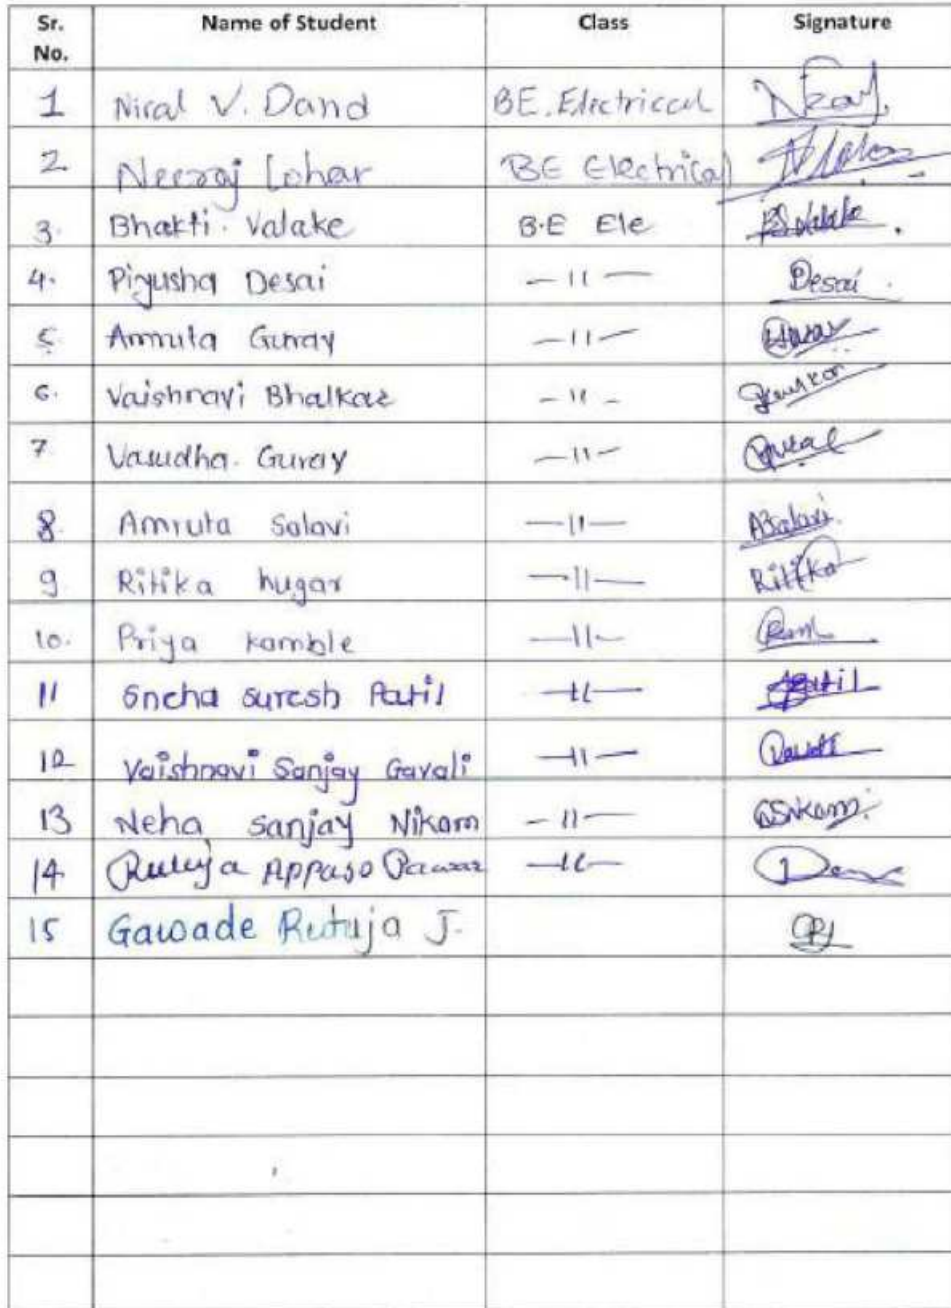 Sr. No. Name of Student Class Signature
1 Niral V. Dand BE. Electrical
2 Neeraj Lohar BE Electrical
3. Bhakti. Valake B.E Ele
4. Piyusha Desai -11- Desai
5. Amruta Gurav -11-
6. Vaishnavi Bhalkar -11-
7 Vasudha. Gurav -11-
8. Amruta Salavi -11- ASalavi
9. Ritika hugar -11- Ritika
10. Priya kamble -11-
11 Sneha Suresh Patil -11- Patil
12 Vaishnavi Sanjay Gavali -11-
13 Neha sanjay Nikam -11- Nikam
14 Rutuja Appaso Pawar -11-
15 Gawade Rutuja J.